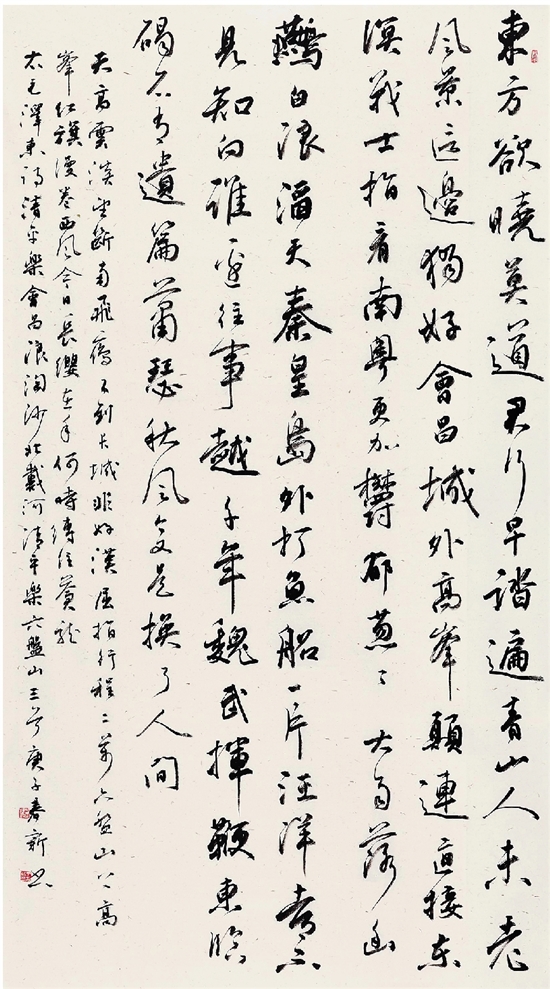 東方欲曉莫道君行早踏遍青山人未老
風景這邊獨好會昌城外高峯顛連直接東
溟戰士指看南粵更加欝郁葱々 大雨落幽
鷰白浪滔天秦皇島外打魚船一片汪洋都不
見知向誰邊往事越千年魏武揮鞭東臨
碣石有遺篇蕭瑟秋風今又是換了人間
天高雲淡望斷南飛雁不到長城非好漢屈指行程二萬六盤山上高
峯紅旗漫卷西風今日長纓在手何時縛住蒼龍
右毛澤東詞清平樂會昌浪淘沙北戴河清平樂六盤山三首庚子春新書